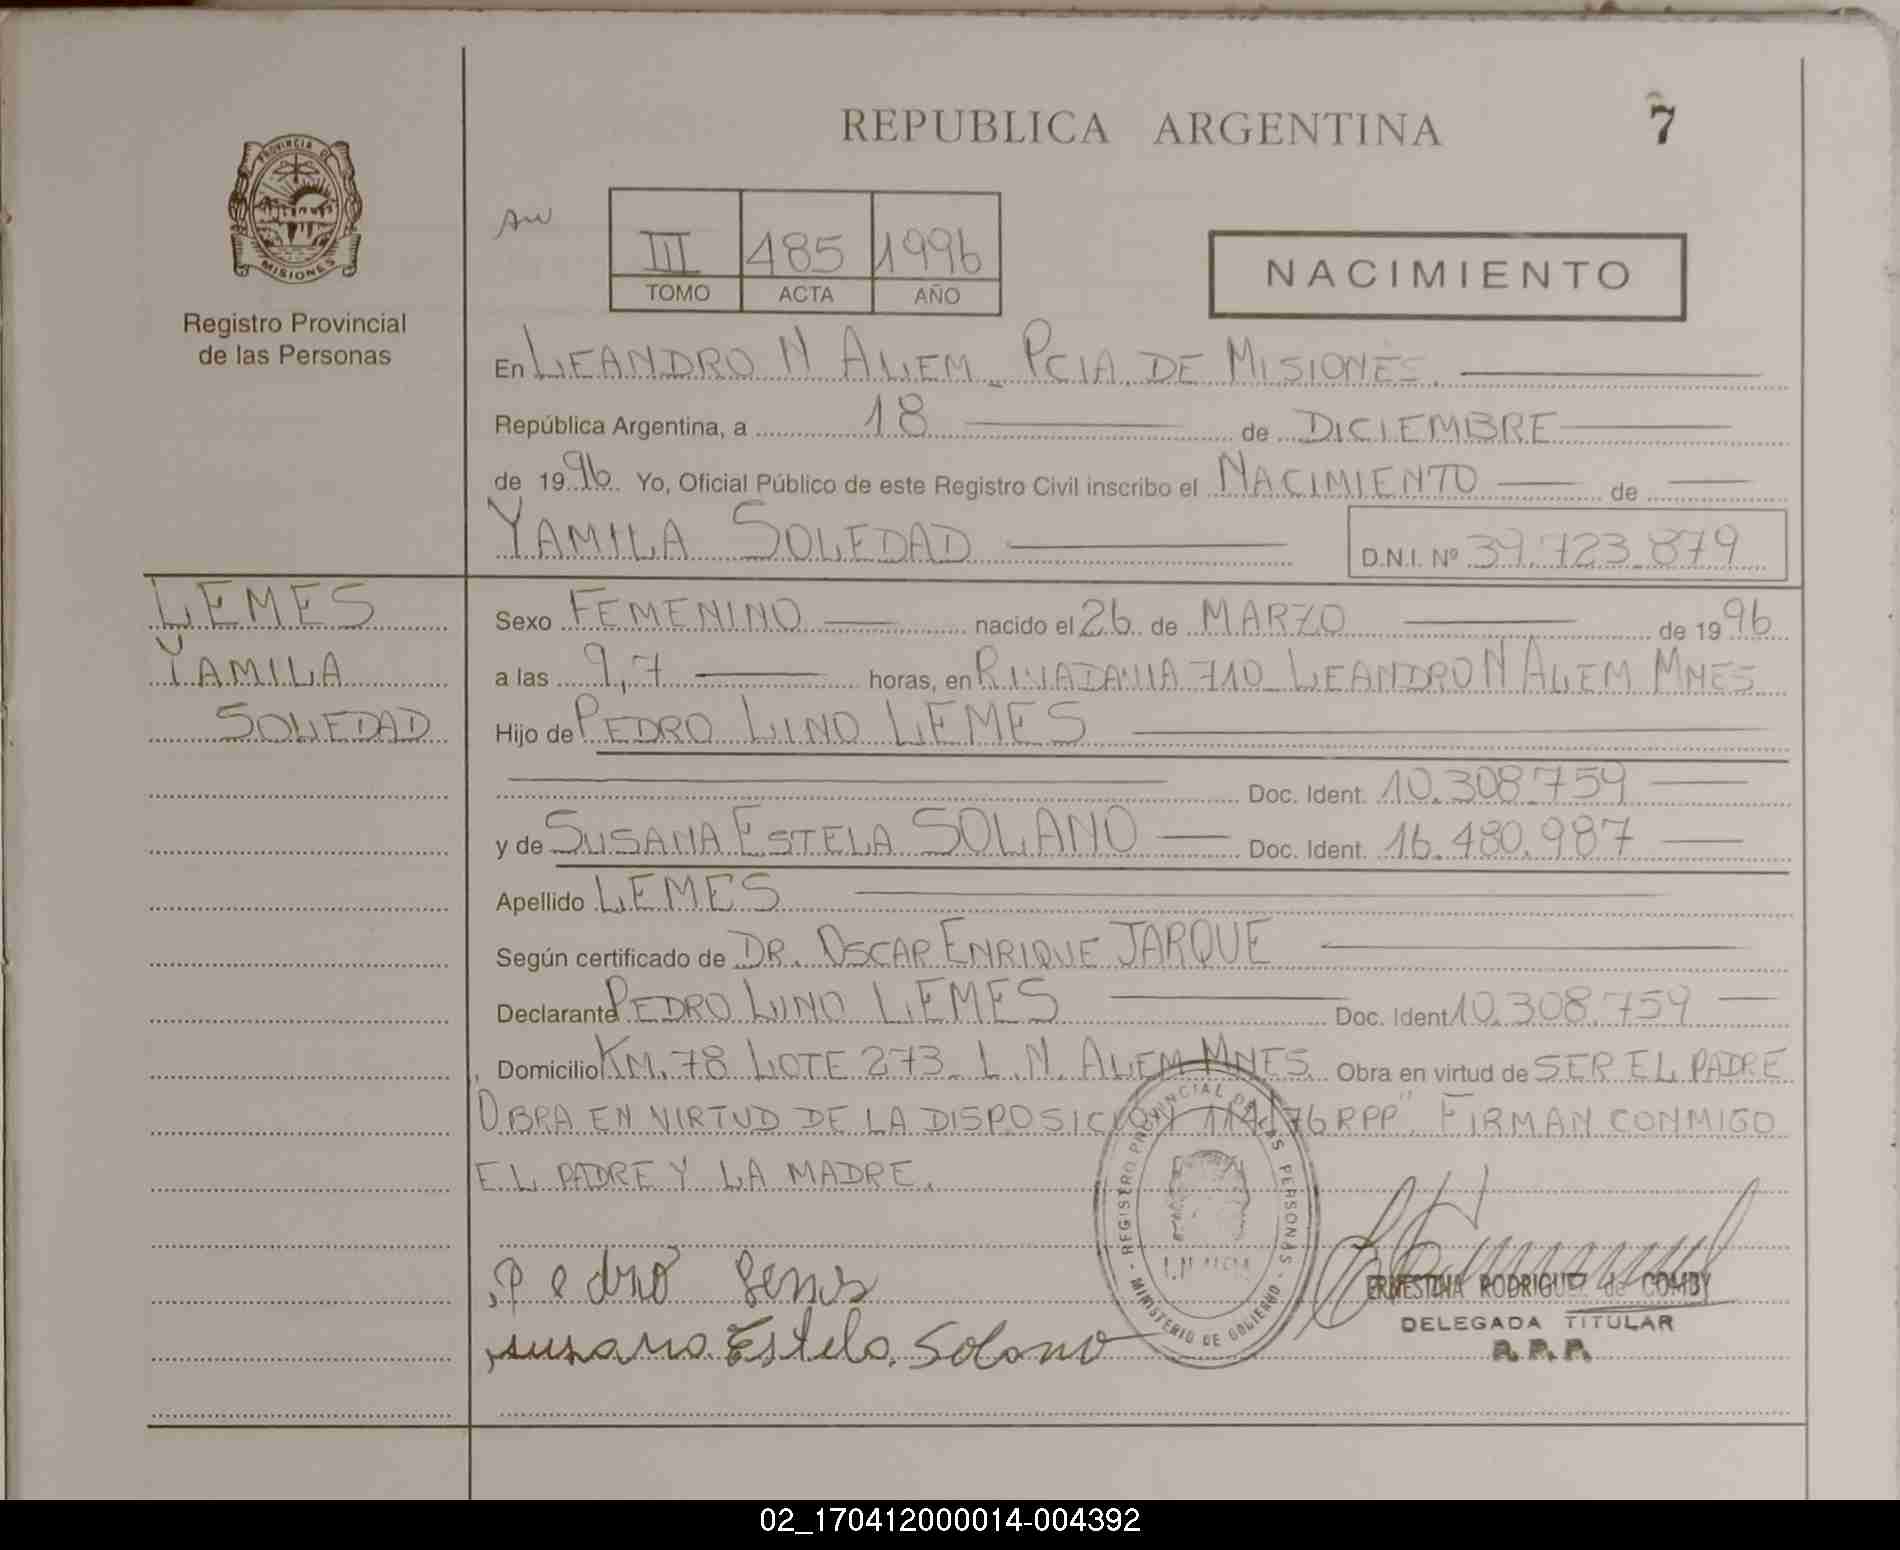 REPUBLICA ARGENTINA
7
PROVINCIA DE
MISIONES
Registro Provincial
de las Personas
III 485 1996
TOMO ACTA AÑO
NACIMIENTO
En LEANDRO N ALEM - PCIA. DE MISIONES.
República Argentina, a 18 de DICIEMBRE
de 1996. Yo, Oficial Público de este Registro Civil inscribo el NACIMIENTO de
YAMILA SOLEDAD D.N.I. Nº 39.723.879
LEMES
YAMILA
SOLEDAD
Sexo FEMENINO nacido el 26 de MARZO de 1996
a las 9,7 horas, en RIVADAVIA 710 LEANDRO N ALEM MNES
Hijo de PEDRO LINO LEMES
Doc. Ident. 10.308.759
y de SUSANA ESTELA SOLANO Doc. Ident. 16.480.987
Apellido LEMES
Según certificado de DR. OSCAR ENRIQUE JARQUE
Declarante PEDRO LINO LEMES Doc. Ident 10.308.759
Domicilio KM. 78 LOTE 273 - L.N. ALEM MNES Obra en virtud de SER EL PADRE
OBRA EN VIRTUD DE LA DISPOSICION 114/76 RPP". FIRMAN CONMIGO
EL PADRE Y LA MADRE.
REGISTRO PROVINCIAL DE LAS PERSONAS - MINISTERIO DE GOBIERNO -
Pedro Lemes
Susana Estela Solano
ERNESTINA RODRIGUEZ de COMBY
DELEGADA TITULAR
R. P. P.
02_170412000014-004392